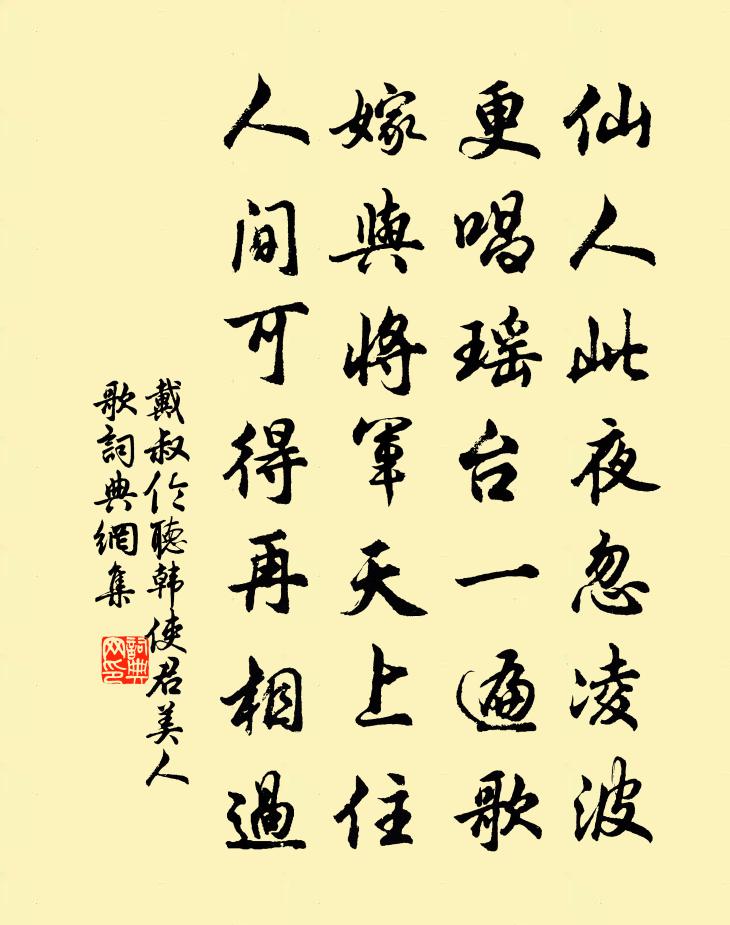 仙人此夜忽凌波
更唱瑶台一遍歌
嫁與將軍天上住
人间可得再相過
戴叔伦聽韩使君美人
歌詞典網集
詞典
网印